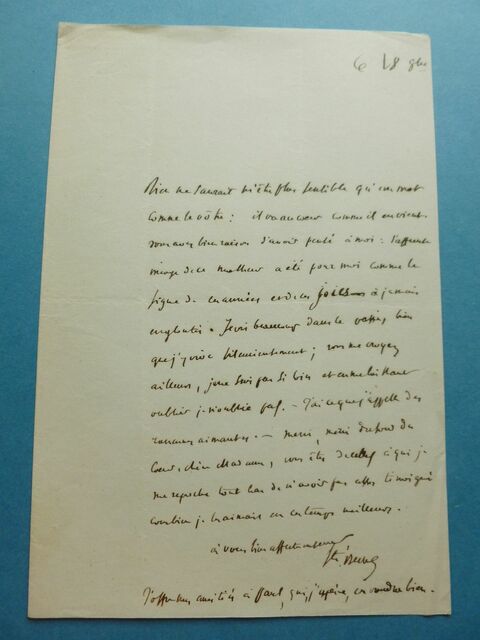 Ce 18 9bre
Rien ne saurait m'être plus sensible qu'un mot
comme le vôtre : il va au cœur comme il en vient.
vous avez bien raison d'avoir pensé à moi :
de ce malheur a été pour moi comme le
signe de années et de à jamais
englouties. Je vis beaucoup dans le passé, bien
que j'y vive silencieusement ; vous me croyez
ailleurs, je ne suis pas si loin et en me laissant
oublier je n'oublie pas. — J'ai ce que j'appelle des
aimantes. — merci, merci du fond du
cœur, chère Madame, vous êtes de à qui je
me reproche tout bas de n'avoir pas assez témoigné
combien je l'aimais en un temps meilleur.
à vous bien affectueusement
Ste Beuve
J'offre mes amitiés à Paul, qui, j'espère, va bien.